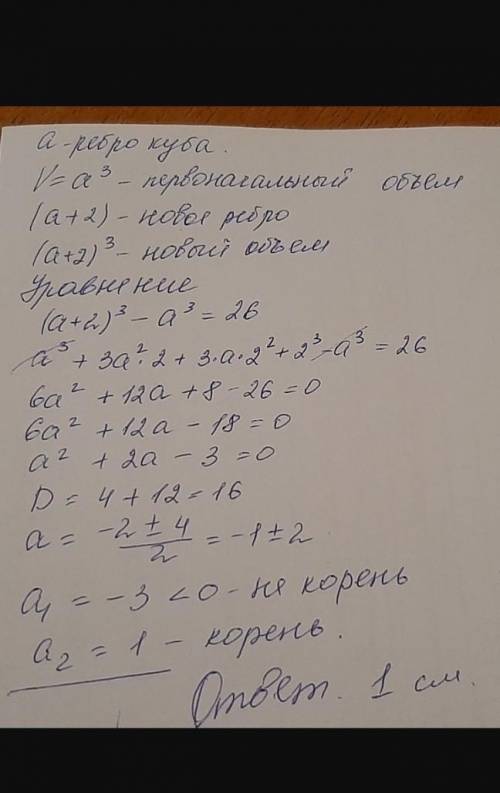 а - ребро куба.
V = a³ - первоначальный объем
(a+2) - новое ребро
(a+2)³ - новый объем
Уравнение
(a+2)³ - a³ = 26
a³ + 3a²·2 + 3·a·2² + 2³ - a³ = 26
6a² + 12a + 8 - 26 = 0
6a² + 12a - 18 = 0
a² + 2a - 3 = 0
D = 4 + 12 = 16
a = (-2 ± 4)/2 = -1 ± 2
a₁ = -3 < 0 - не корень
a₂ = 1 - корень.
Ответ. 1 см.